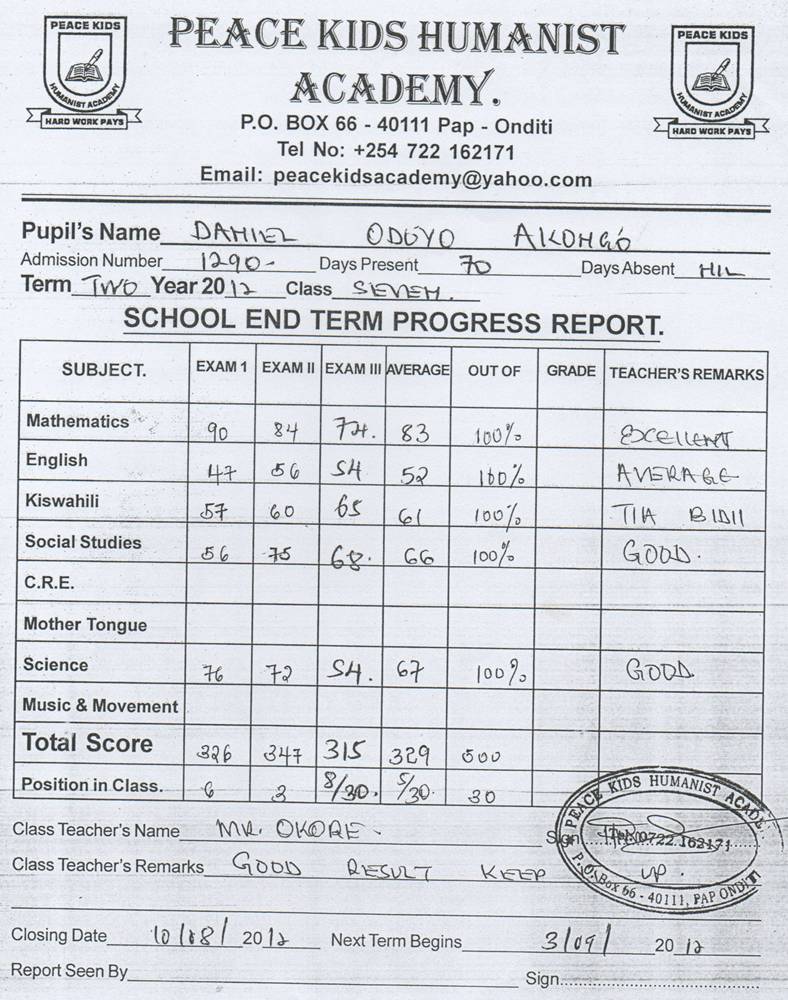 PEACE KIDS
HUMANIST ACADEMY
HARD WORK PAYS
PEACE KIDS HUMANIST
ACADEMY.
P.O. BOX 66 - 40111 Pap - Onditi
Tel No: +254 722 162171
Email: peacekidsacademy@yahoo.com
PEACE KIDS
HUMANIST ACADEMY
HARD WORK PAYS
Pupil's Name DANIEL ODUYO AKONGO
Admission Number 1290- Days Present 70 Days Absent NIL
Term TWO Year 2012 Class SEVEN.
SCHOOL END TERM PROGRESS REPORT.
SUBJECT. EXAM 1 EXAM II EXAM III AVERAGE OUT OF GRADE TEACHER'S REMARKS
Mathematics 90 84 74. 83 100% EXCELLENT
English 47 56 54 52 100% AVERAGE
Kiswahili 57 60 65 61 100% TIA BIDII
Social Studies 56 75 68. 66 100% GOOD.
C.R.E.
Mother Tongue
Science 76 72 54. 67 100% GOOD
Music & Movement
Total Score 326 347 315 329 500
Position in Class. 6 3 8/30. 5/30. 30
Class Teacher's Name MR. OKORE - Sign
Class Teacher's Remarks GOOD RESULT KEEP UP.
PEACE KIDS HUMANIST ACADE
0722 162171
P.O. Box 66 - 40111, PAP ONDITI
Closing Date 10/08/ 2012 Next Term Begins 3/09/ 2012
Report Seen By Sign